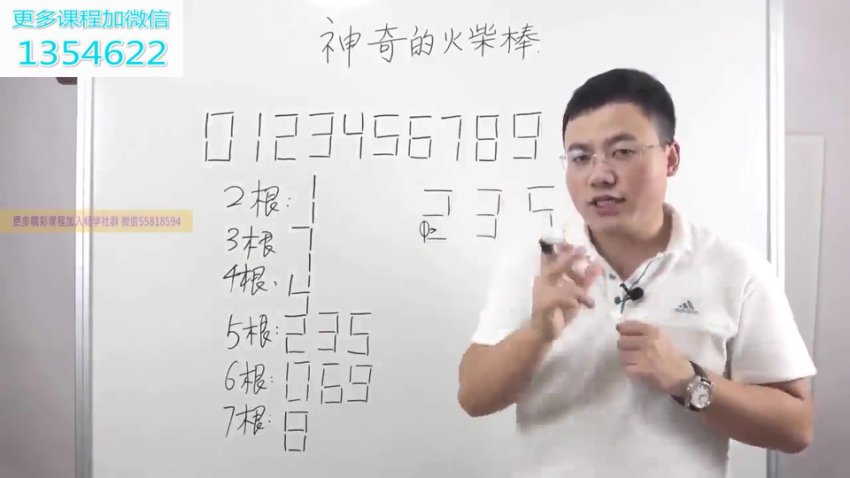 更多课程加微信
1354622
神奇的火柴棒.
0123456789
2根: 1
3根 7
4根. 4
5根: 235
6根: 069
7根: 8
2 3 5
更多精彩课程加入研学社群 微信55818594
adidas